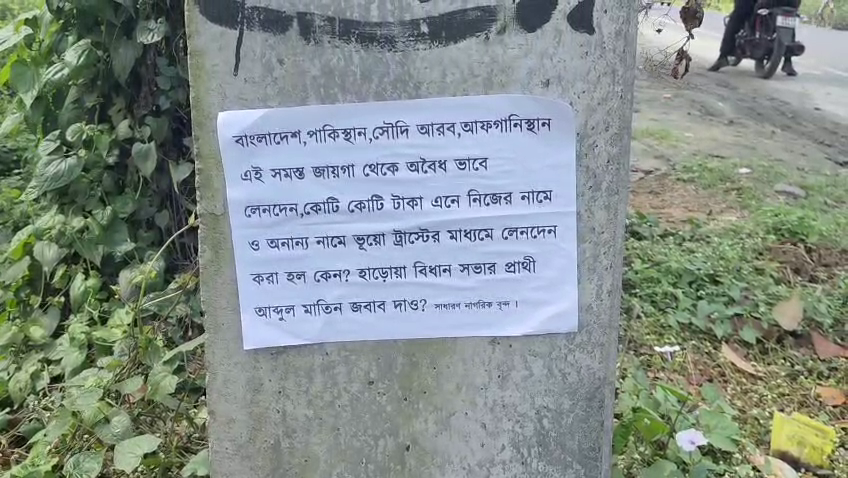 বাংলাদেশ,পাকিস্থান,সৌদি আরব,আফগানিস্থান
এই সমস্ত জায়গা থেকে অবৈধ ভাবে
লেনদেন,কোটি কোটি টাকা এনে নিজের নামে
ও অনান্য নামে ভূয়ো ট্রাস্টের মাধ্যমে লেনদেন
করা হল কেন? হাড়োয়া বিধান সভার প্রাথী
আব্দুল মাতিন জবাব দাও? সাধারন নাগরিক বৃন্দ ।